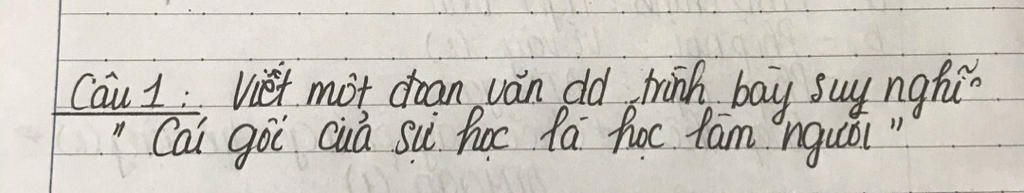 Câu 1: Viết một đoạn văn dd trình bày suy nghĩ
" Cái gốc của sự học là học làm người "